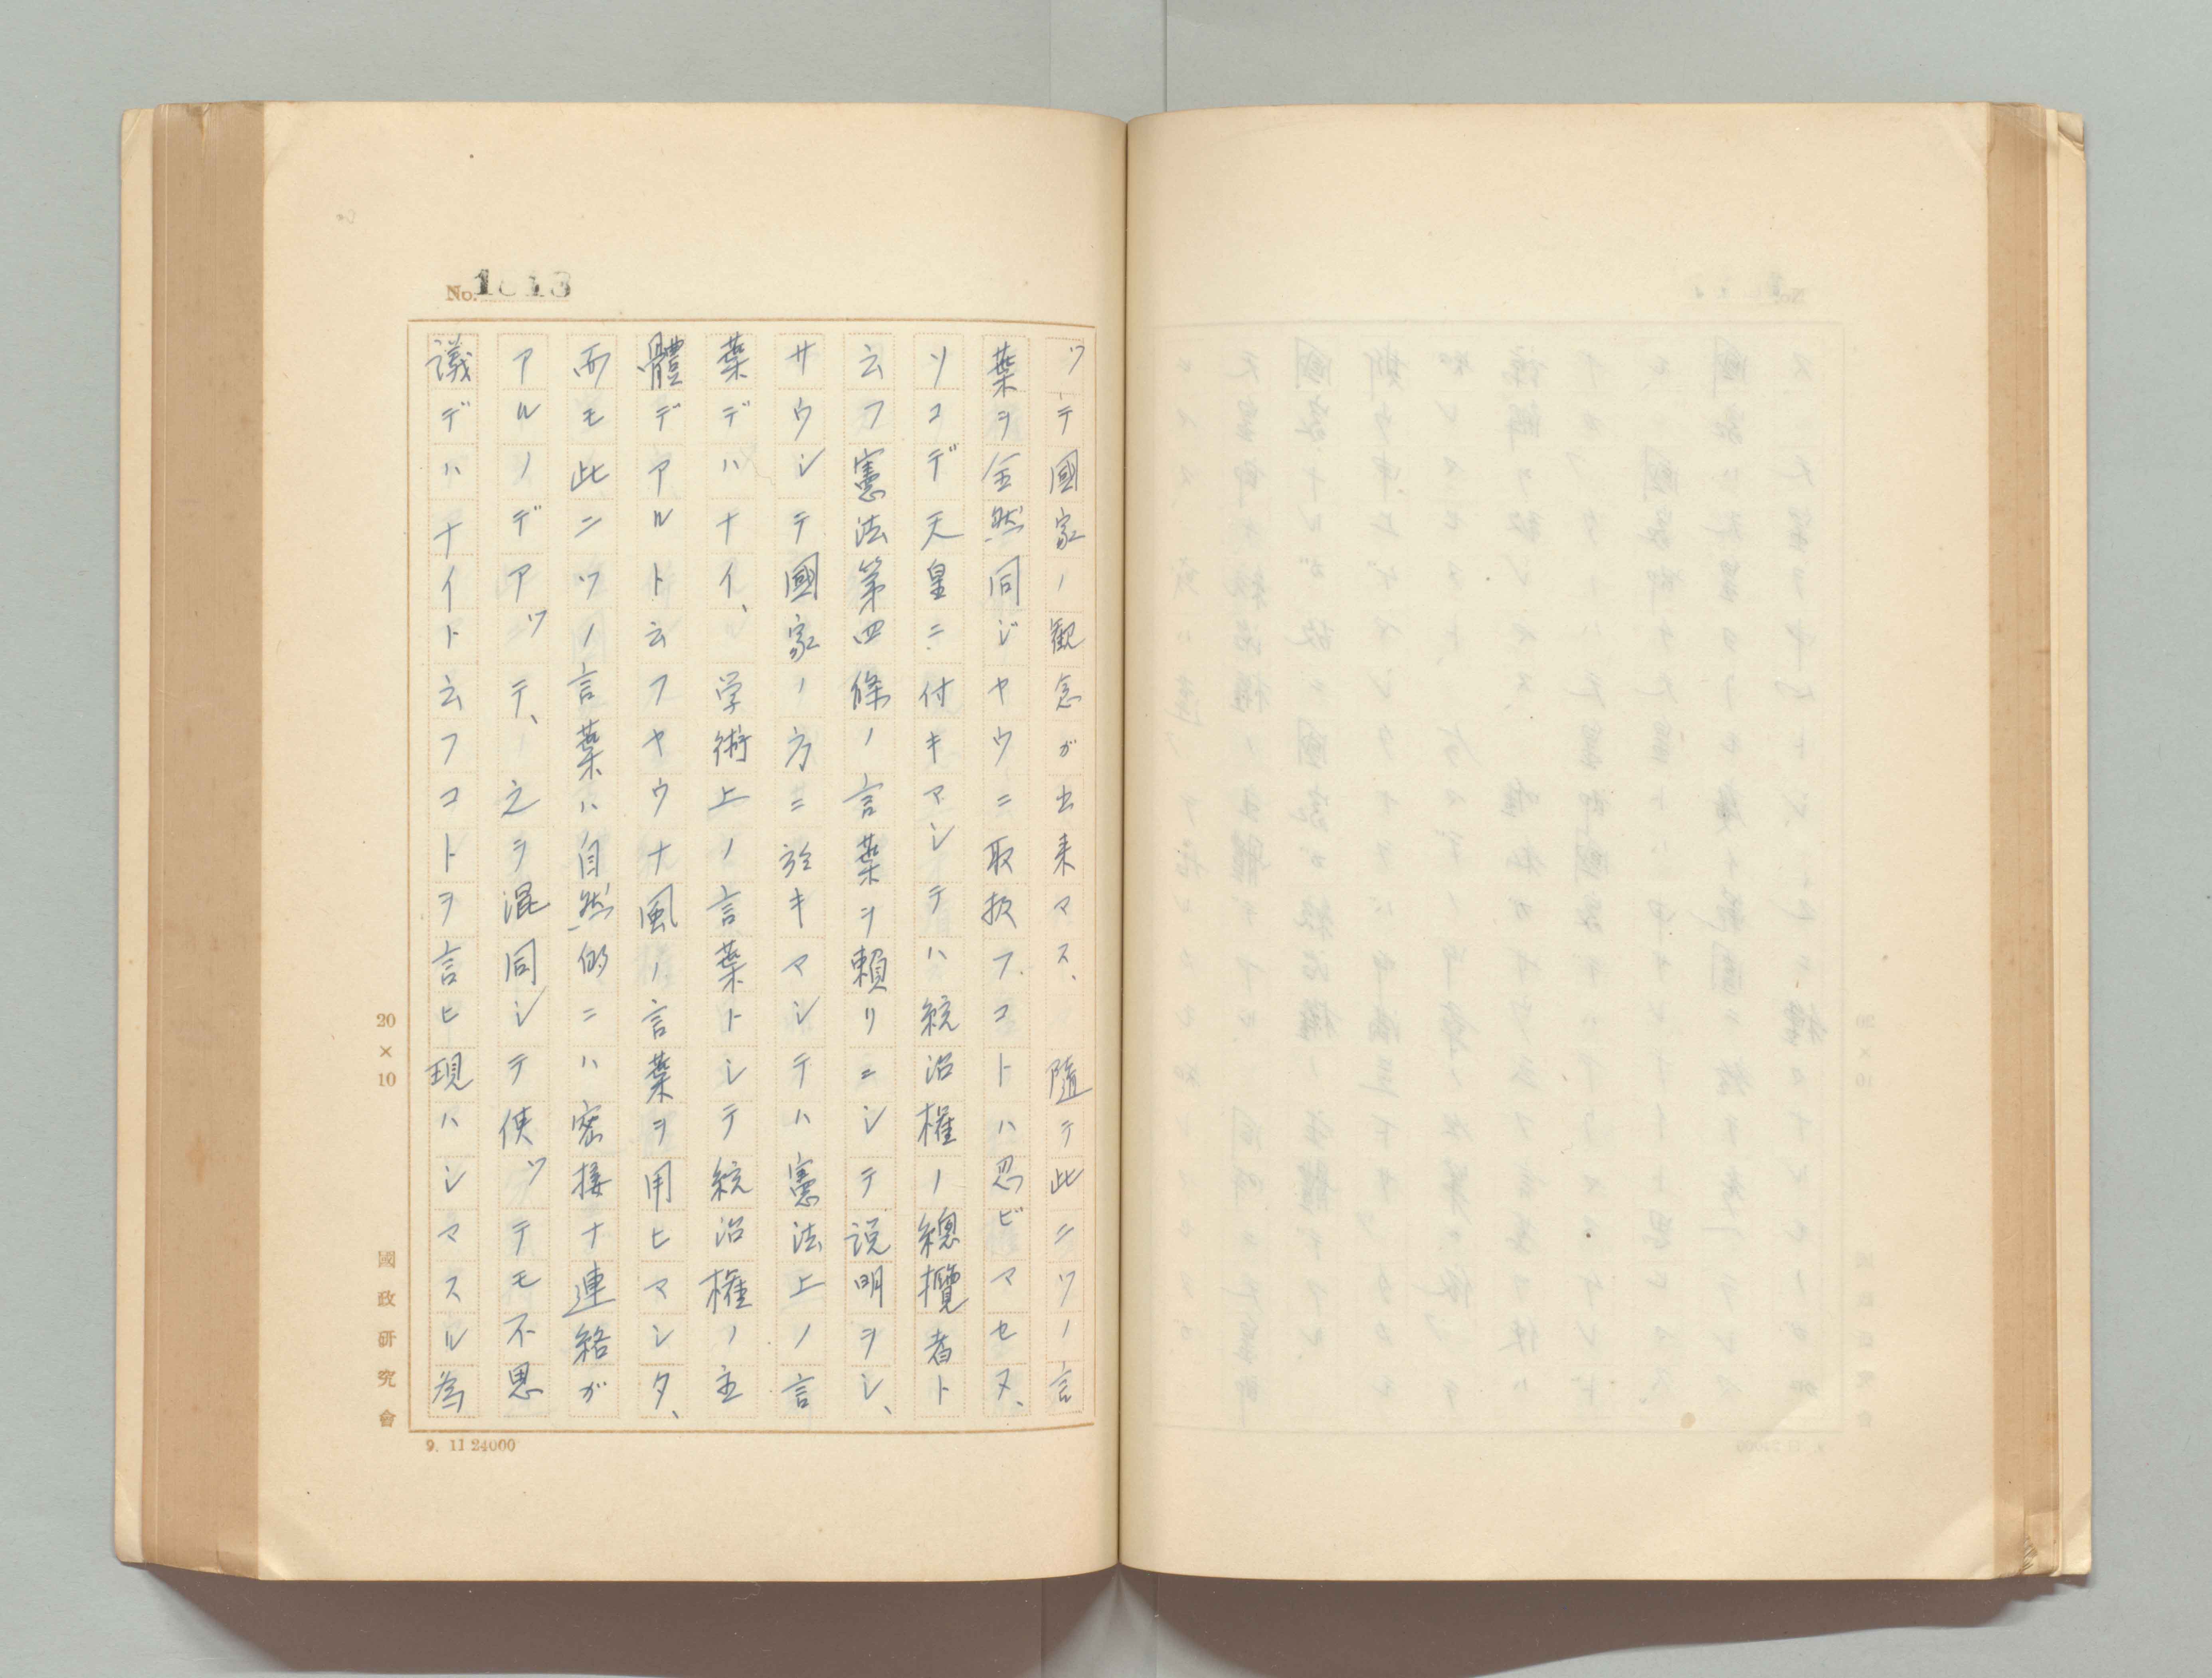 No. 1013
ツテ國家ノ観念ガ出来マス、隨テ此ニツノ言
葉ヲ全然同ジヤウニ取扱フコトハ忍ビマセヌ、
ソコデ天皇ニ付キマシテハ統治権ノ總攬者ト
云フ憲法第四條ノ言葉ヲ頼リニシテ説明ヲシ、
サウシテ國家ノ方ニ於キマシテハ憲法上ノ言
葉デハナイ、学術上ノ言葉トシテ統治権ノ主
體デアルト云フヤウナ風ノ言葉ヲ用ヒマシタ、
而モ此ニツノ言葉ハ自然的ニハ密接ナ連絡ガ
アルノデアツテ、之ヲ混同シテ使ツテモ不思
議デハナイト云フコトヲ言ヒ現ハシマスル為
20×10
國政研究會
9. 11 24000